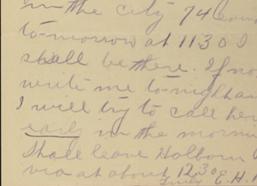 in the city 74
to-morrow at 11 30 I
shall be there. If no
write me to-night an
I will try to call her
early in the morni
Shall leave Holborn
via at about 12 30
E. H.